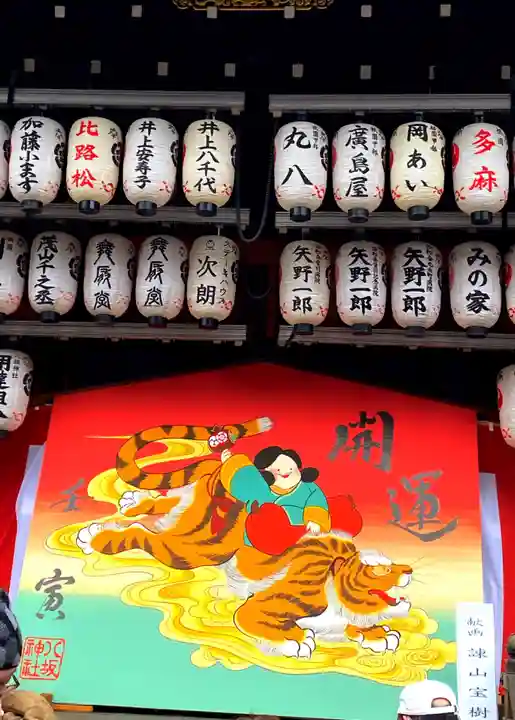 加藤小ます
比路松
井上安寿子
井上八千代
丸八
廣島屋
岡あい
多麻
茂山千之丞
次朗
矢野一郎
矢野一郎
矢野一郎
みの家
開運
壬寅
八坂神社
献納 諌山宝樹